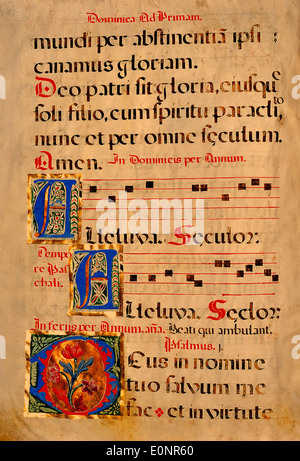 Dominica Ad Primam.
mundi per abstinentiā ipsi :
canamus gloriam.
Deo patri sit gloria, eiusq̄
soli filio, cum spiritu paraclito,
nunc et per omne sęculum.
Amen. In Dominicis per Annum.
ALleluya. Seculor.
Tempo
re Pas
chali.
ALleluya. Seclor.
In ferijs per Annum. aña. Beati qui ambulant.
Psalmus. j.
DEus in nomine
tuo salvum me
fac et in virtute
alamy
E0NR60